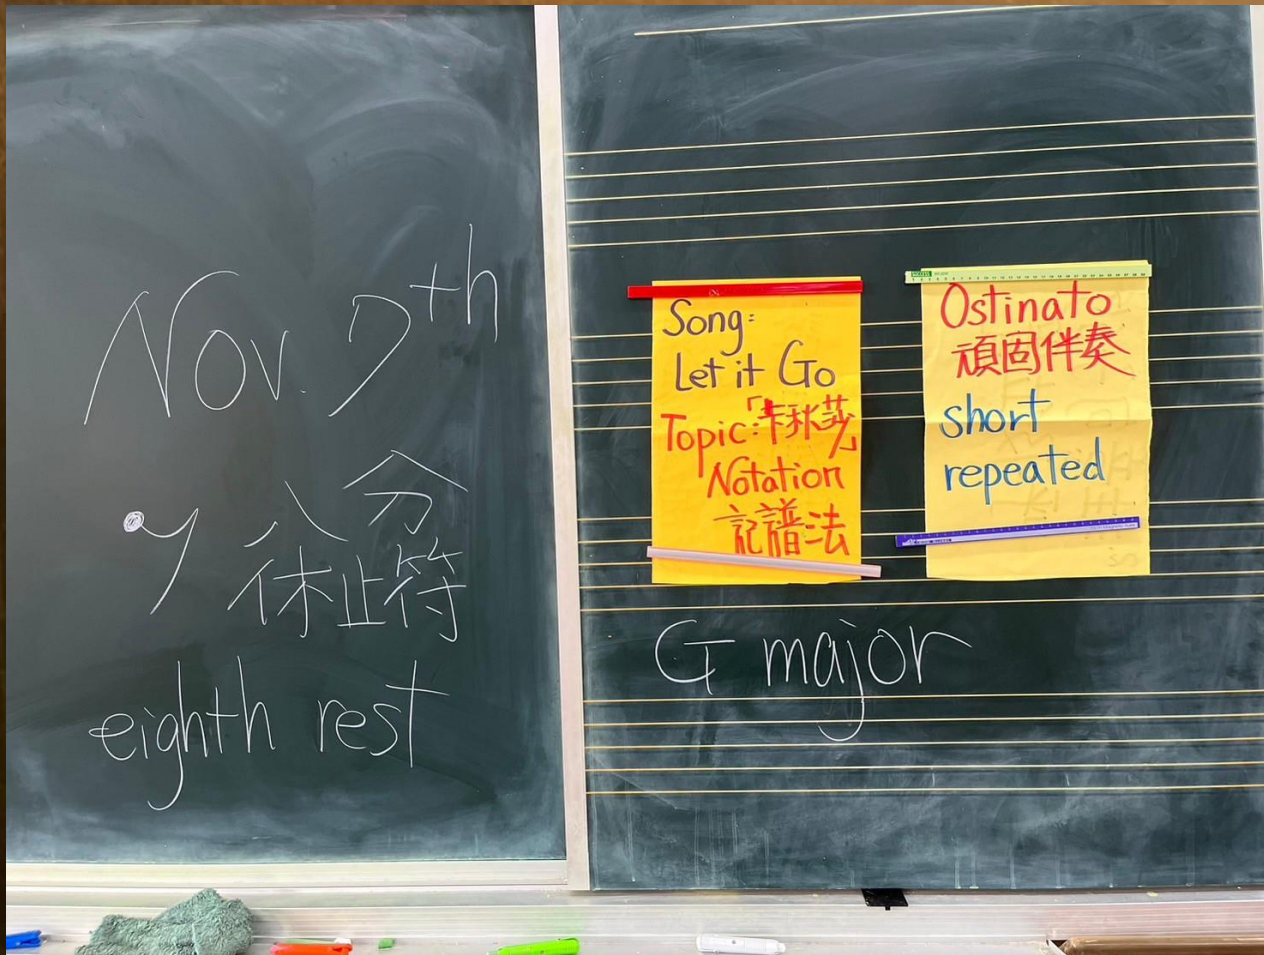 Nov. 7th
八分
休止符
eighth rest
Song:
Let it Go
Topic:「卡林莎」
Notation
記譜法
Ostinato
頑固伴奏
short
repeated
G major